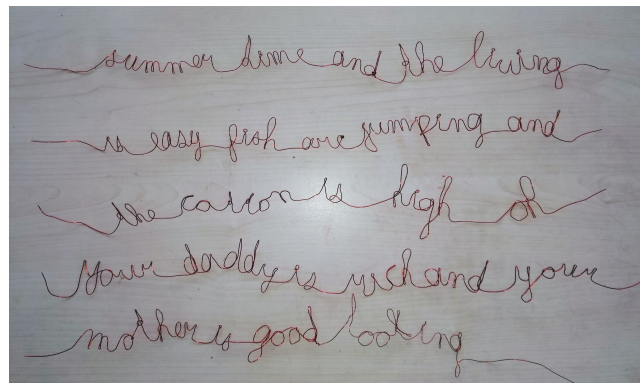 summer time and the living
is easy fish are jumping and
the cotton is high oh
your daddy is rich and your
mother is good looking